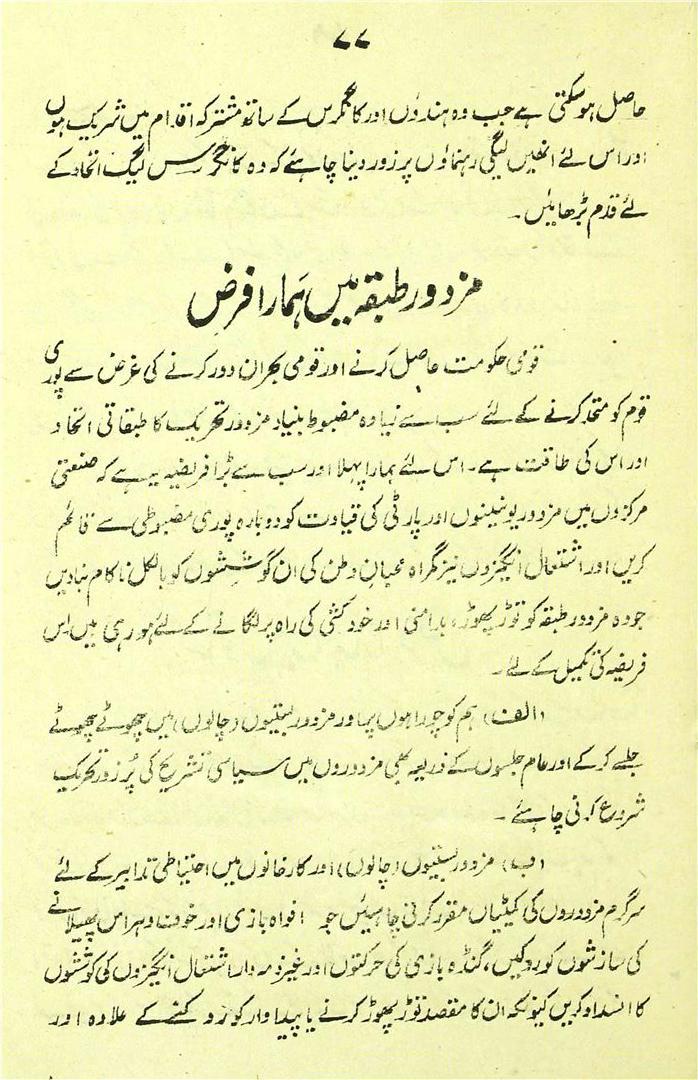 ۷۷
حاصل ہوسکتی ہے جب وہ ہندوؤں اور کانگرس کے ساتھ مشترکہ اقدام میں شریک ہوں
اور اس لئے انھیں لیگی رہنماؤں پر زور دینا چاہئے کہ وہ کانگرس لیگ اتحاد کے
لئے قدم بڑھائیں۔
مزدور طبقہ میں ہمارا فرض
قومی حکومت حاصل کرنے اور قومی بحران دور کرنے کی غرض سے پوری
قوم کو متحد کرنے کے لئے سب سے زیادہ مضبوط بنیاد مزدور تحریک کا طبقاتی اتحاد
اور اس کی طاقت ہے۔ اس لئے ہمارا پہلا اور سب سے بڑا فریضہ یہ ہے کہ صنعتی
مرکزوں میں مزدور یونینوں اور پارٹی کی قیادت کو دوبارہ پوری مضبوطی سے قائم
کریں اور اشتعال انگیزوں نیز گمراہ محبان وطن کی ان کوششوں کو بالکل ناکام بنادیں
جو وہ مزدور طبقہ کو توڑ پھوڑ، بدامنی اور خودکشی کی راہ پر لگانے کے لئے ہورہی ہیں اس
فریضہ کی تکمیل کے لئے۔
(الف) ہم کو چوراہوں پر اور مزدور بستیوں (چالوں) میں چھوٹے چھوٹے
جلسے کرکے اور عام جلسوں کے ذریعہ بھی مزدوروں میں سیاسی تشریح کی پُرزور تحریک
شروع کرنی چاہئے۔
(ب) مزدور بستیوں (چالوں) اور کارخانوں میں احتیاطی تدابیر کے لئے
سرگرم مزدوروں کی کمیٹیاں مقرر کرنی چاہیئں جو افواہ بازی اور خوف وہراس پھیلانے
کی سازشوں کو روکیں، گنڈہ بازی کی حرکتوں اور غیر ذمہ دار اشتعال انگیزوں کی کوششوں
کا انسداد کریں کیونکہ ان کا مقصد توڑ پھوڑ کرنے یا پیداوار کو روکنے کے علاوہ اور